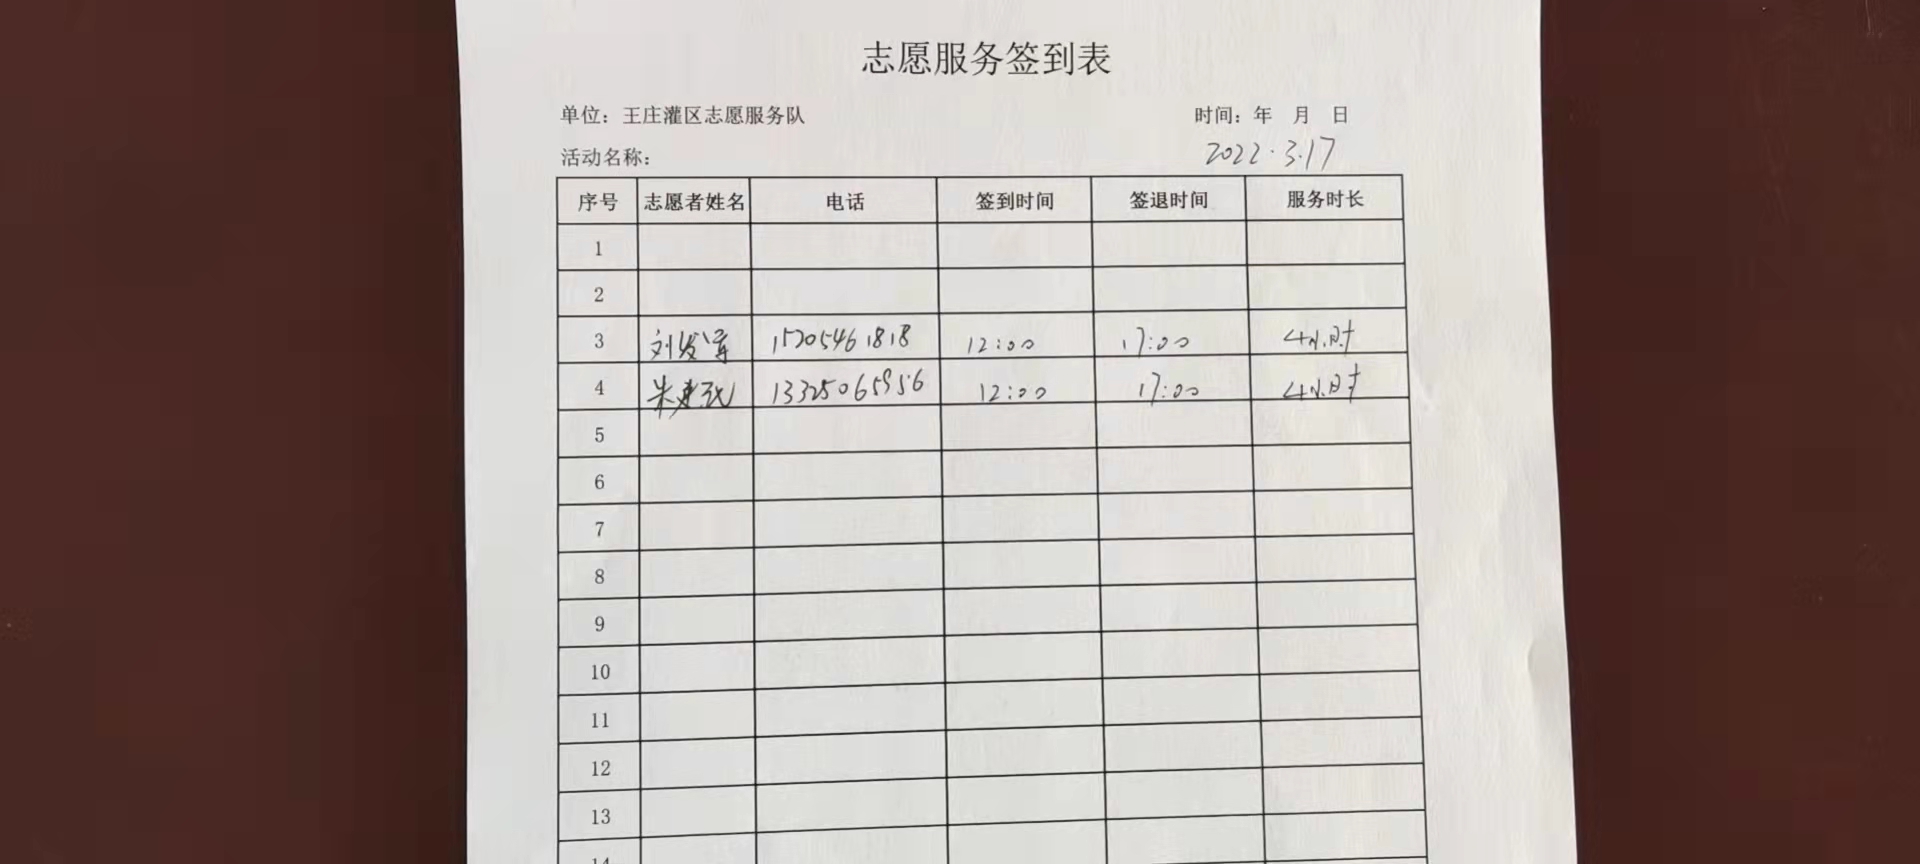 志愿服务签到表
单位：王庄灌区志愿服务队 时间：年 月 日
活动名称： 2022.3.17
序号 志愿者姓名 电话 签到时间 签退时间 服务时长
1
2
3 刘发军 15205461818 12:00 17:00 4小时
4 朱建 13325065956 12:00 17:00 4小时
5
6
7
8
9
10
11
12
13
14